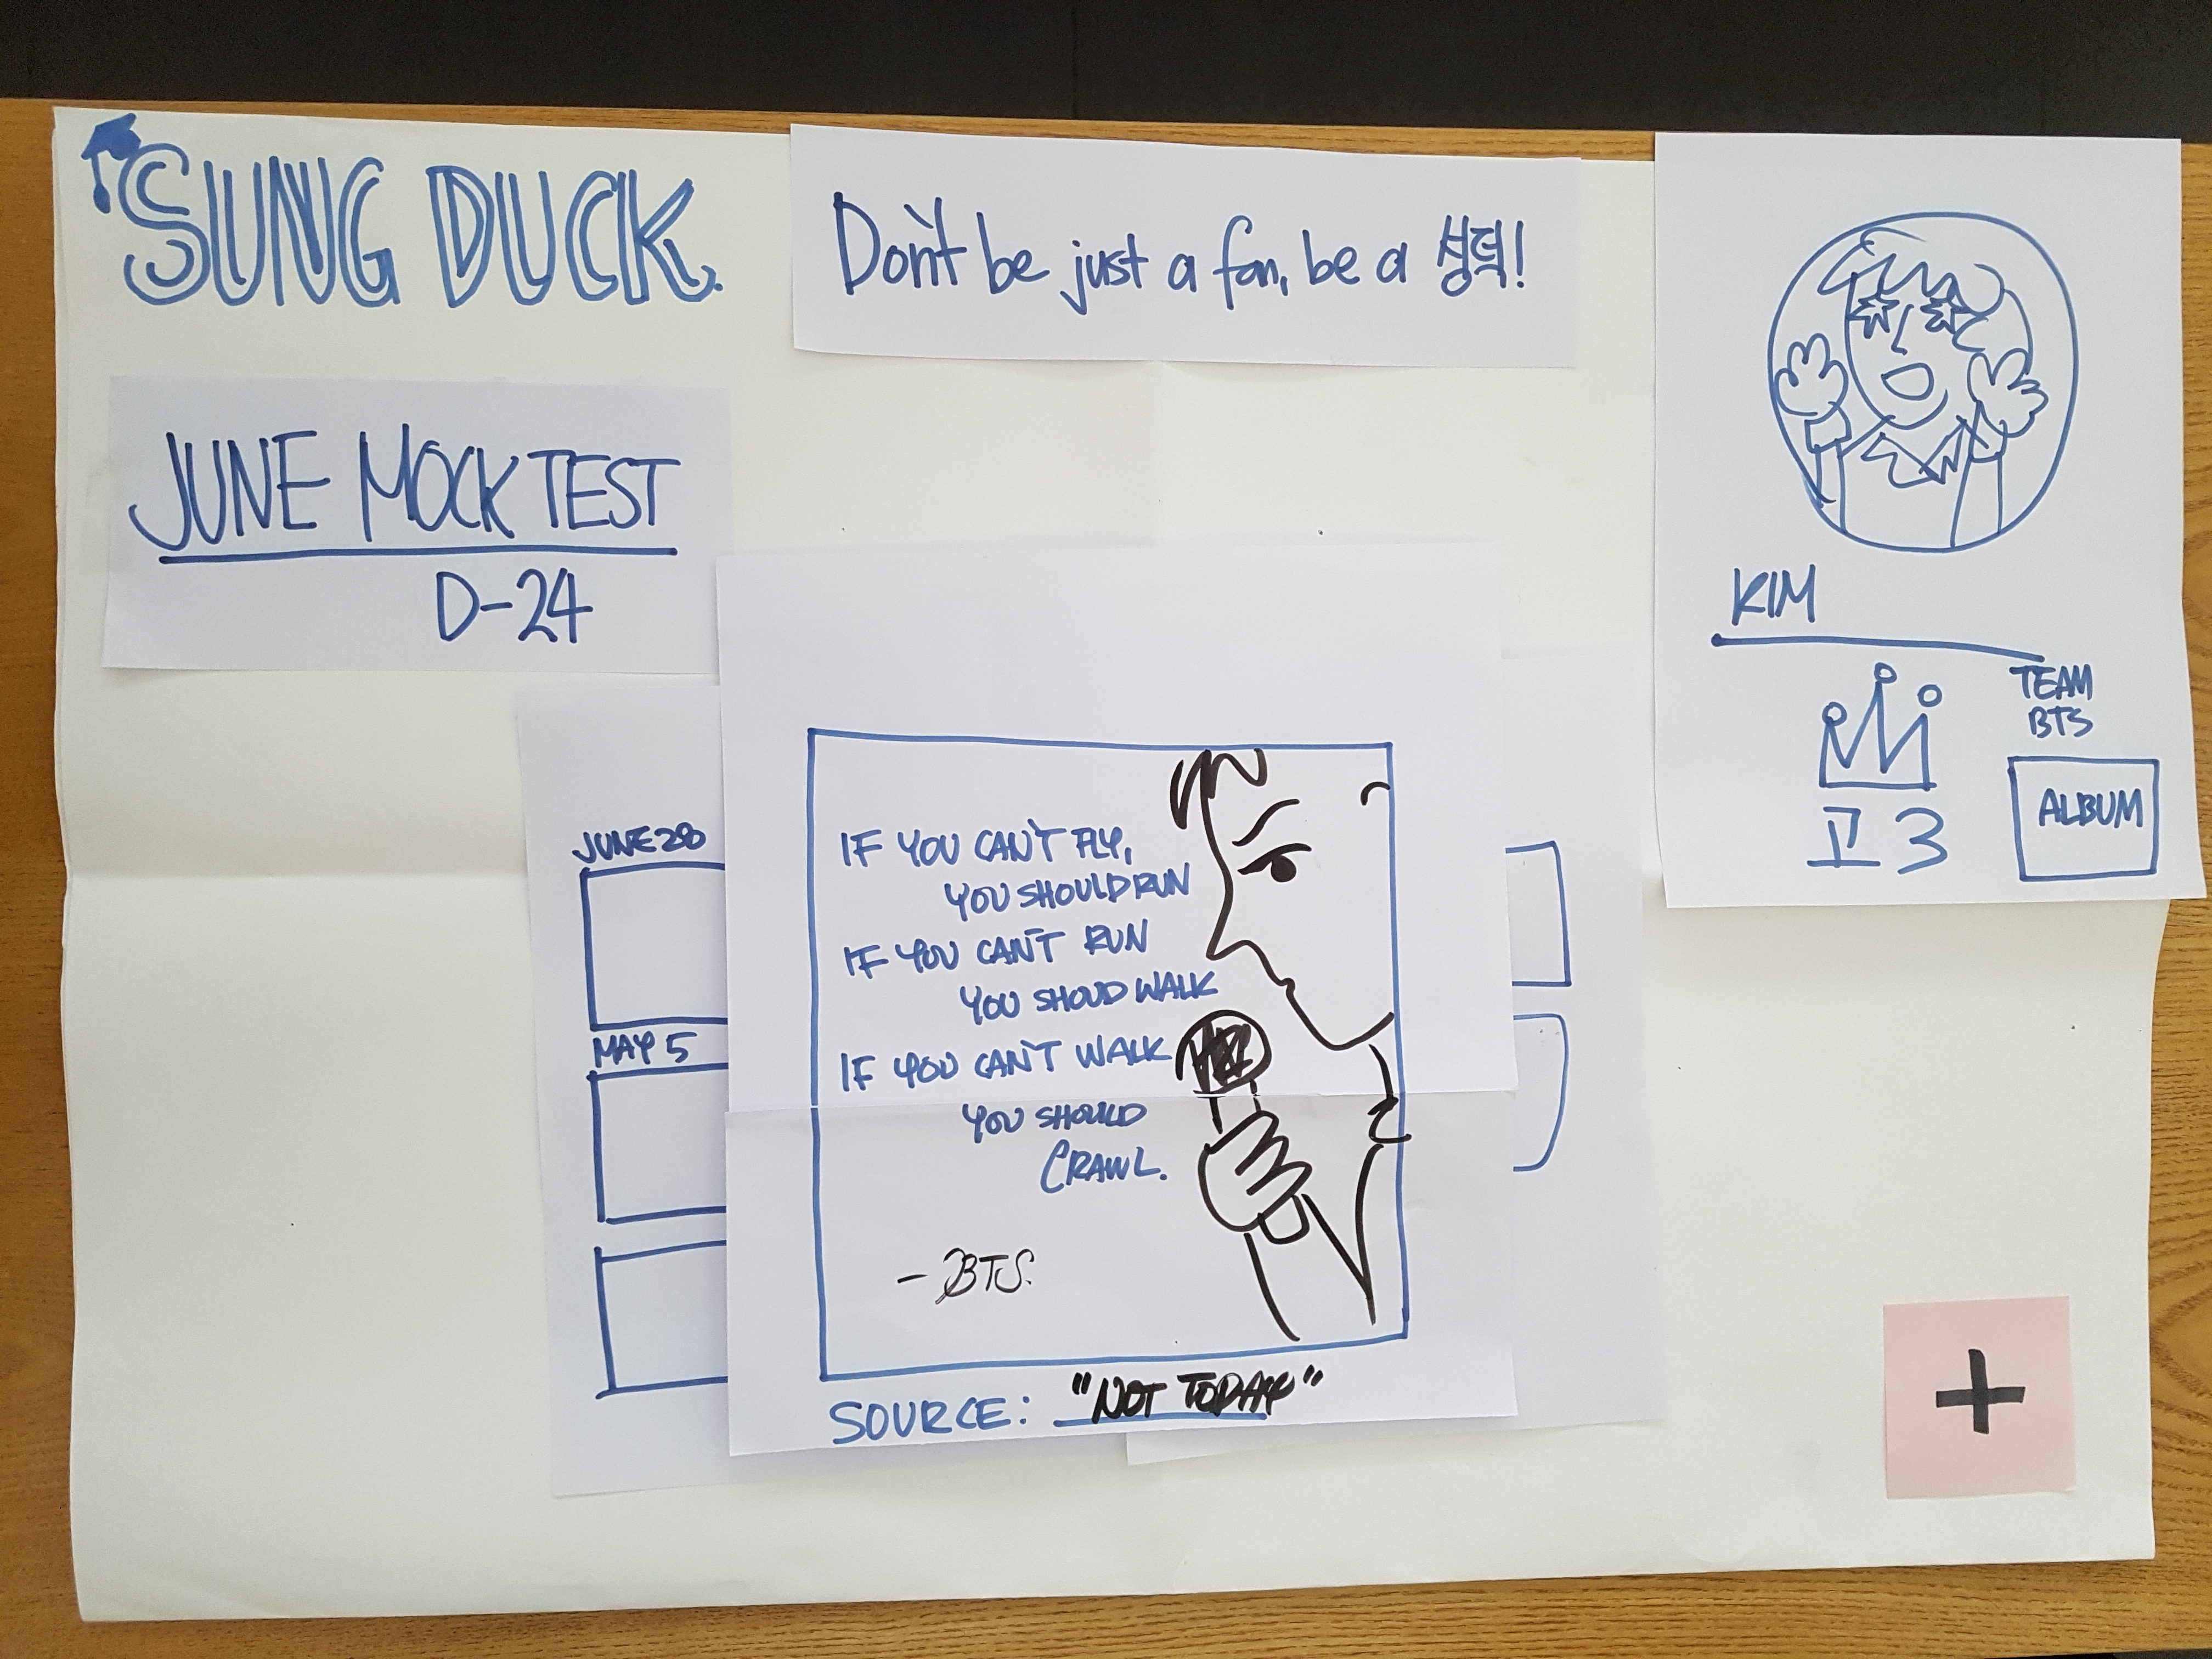 SUNG DUCK.
Don't be just a fan, be a 성덕!
JUNE MOCK TEST
D-24
KIM
TEAM
BTS
고3
ALBUM
JUNE 28
MAY 5
IF YOU CAN'T FLY,
YOU SHOULD RUN
IF YOU CAN'T RUN
YOU SHOUD WALK
IF YOU CAN'T WALK
YOU SHOULD
CRAWL.
- BTS.
SOURCE: "NOT TODAY"
+